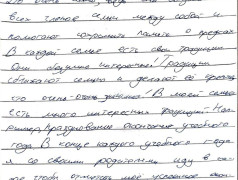 всех членов семьи между собой и
помогают сохранить память о предках
В каждой семье есть свои традиции
Они безумно интересные! Традиции
сближают семью и делают её крепче,
что очень важно! В моей семье
есть много интересных традиций. Нап
ример, празднование окончания учебного
года. В конце каждого учебного года
я со своими родителями иду в ка
фе чтобы отметить моё успешное окон